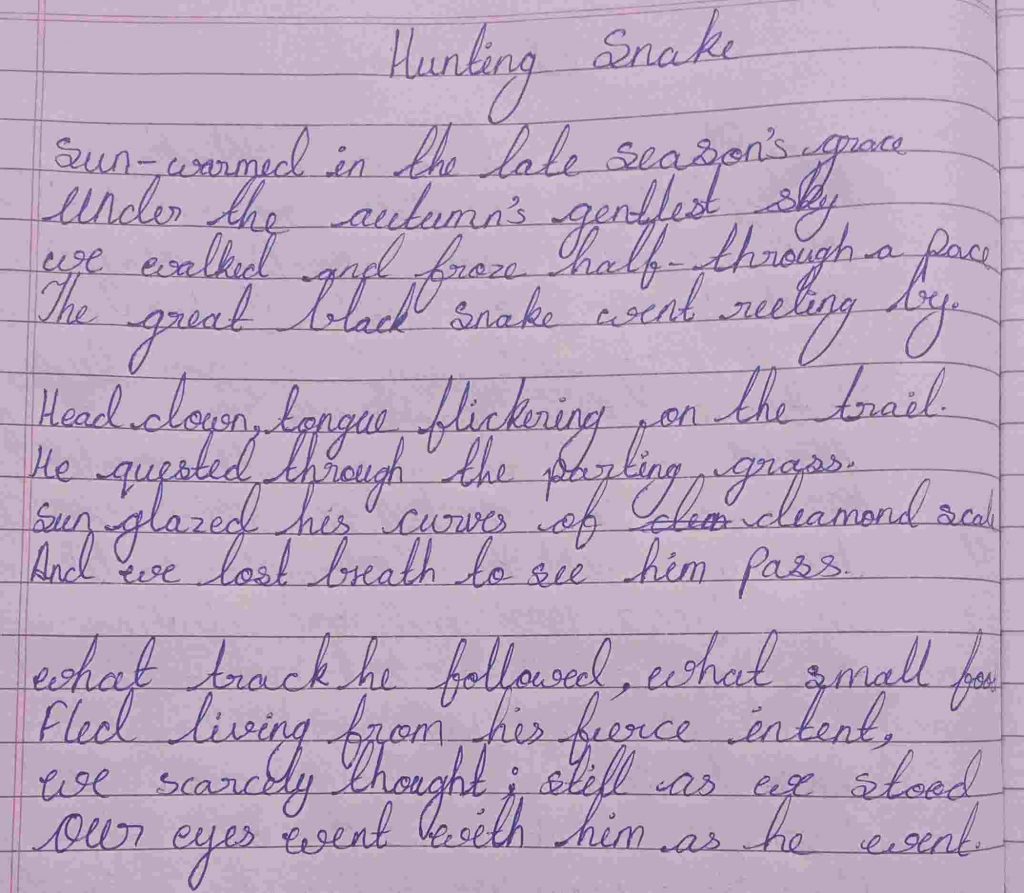 Hunting Snake
Sun-warmed in the late season's grace
Under the autumn's gentlest sky
we walked and froze half-through a pace
The great black snake went reeling by.
Head down, tongue flickering on the trail.
He quested through the parting grass.
Sun glazed his curves of diamond scal
And we lost breath to see him pass.
what track he followed, what small foo
Fled living from his fierce intent,
we scarcely thought; still as we stood
Our eyes went with him as he went.